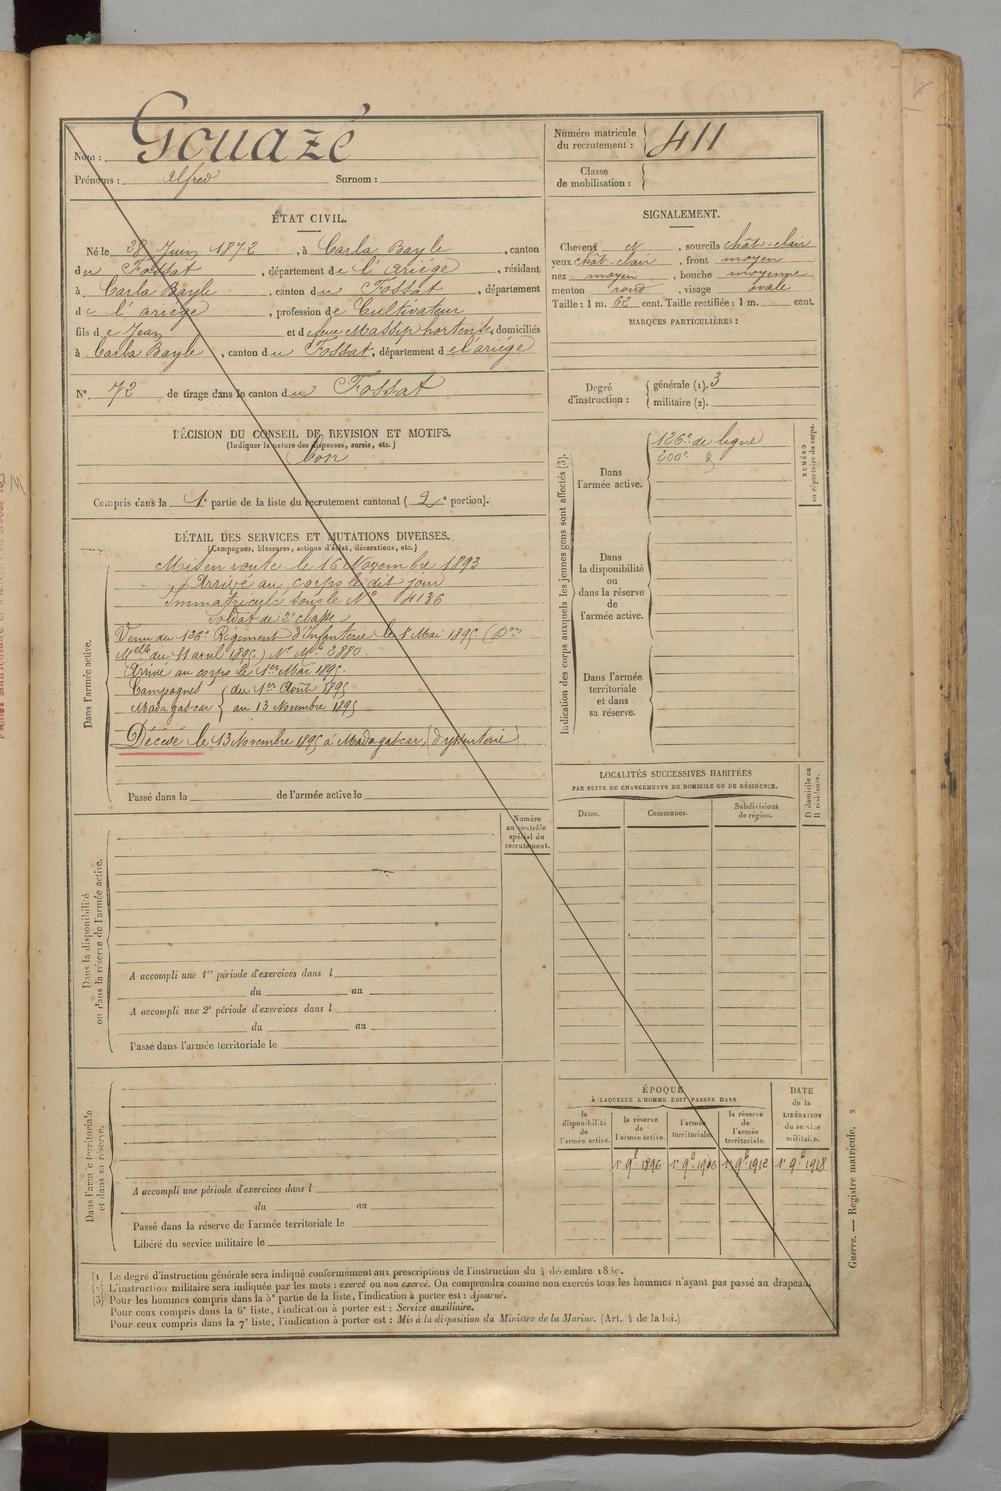 Nom : Gouazé
Prénoms : Alfred Surnom :
Numéro matricule du recrutement : 411
Classe de mobilisation :
ÉTAT CIVIL.
Né le 28 Juin 1872, à Carla Bayle, canton
du Fossat, département de l'Ariége, résidant
à Carla Bayle, canton du Fossat, département
de l'ariége, profession de Cultivateur
fils de Jean et de feue Massip hortense, domiciliés
à Carla Bayle, canton du Fossat, département de l'ariége
N° 72 de tirage dans le canton du Fossat
DÉCISION DU CONSEIL DE REVISION ET MOTIFS.
(Indiquer la nature des dispenses, sursis, etc.)
bon
Compris dans la 1e partie de la liste du recrutement cantonal (2e portion).
DÉTAIL DES SERVICES ET MUTATIONS DIVERSES.
(Campagnes, blessures, actions d'éclat, décorations, etc.)
Dans l'armée active.
Mis en route le 16 Novembre 1893
Arrivé au corps le dit jour
Immatriculé sous le N° 4136
Soldat de 2e classe
Venu du 126e Régiment d'Infanterie le 1er Mai 1895 (Don
Melle du 11 avril 1895) N° Mle 2880.
Arrivé au corps le 1er Mai 1895.
Campagnes { du 1er Août 1895
Madagascar { au 13 Novembre 1895
Décédé le 13 Novembre 1895 à Madagascar, (dyssenterie)
Passé dans la de l'armée active le
Dans la disponibilité
ou dans la réserve de l'armée active.
Numéro
au contrôle
spécial du
recrutement.
A accompli une 1re période d'exercices dans l
du au
A accompli une 2e période d'exercices dans l
du au
Passé dans l'armée territoriale le
Dans l'armée territoriale
et dans sa réserve.
A accompli une période d'exercices dans l
du au
Passé dans la réserve de l'armée territoriale le
Libéré du service militaire le
SIGNALEMENT.
Cheveux N, sourcils chât-clair
yeux chât-clair, front moyen
nez moyen, bouche moyenne
menton rond, visage ovale
Taille : 1 m. 62 cent. Taille rectifiée : 1 m. cent.
MARQUES PARTICULIÈRES :
Degré d'instruction : { générale (1). 3
militaire (2).
Indication des corps auxquels les jeunes gens sont affectés (3).
NUMÉRO
au répertoire du corps.
Dans
l'armée active.
126e de ligne
200e
Dans
la disponibilité
ou
dans la réserve
de
l'armée active.
Dans l'armée
territoriale
et dans
sa réserve.
LOCALITÉS SUCCESSIVES HABITÉES
PAR SUITE DE CHANGEMENTS DE DOMICILE OU DE RÉSIDENCE.
D domicile ou
R résidence.
Dates. Communes. Subdivisions de région.
ÉPOQUE
À LAQUELLE L'HOMME DOIT PASSER DANS
DATE
de la
LIBÉRATION
du service
militaire.
la disponibilité de l'armée active. la réserve de l'armée active. l'armée territoriale. la réserve de l'armée territoriale.
1r 9b 1896 1r 9b 1906 1r 9b 1912 1r 9b 1918
(1) Le degré d'instruction générale sera indiqué conformément aux prescriptions de l'instruction du 4 décembre 1889.
(2) L'instruction militaire sera indiquée par les mots : exercé ou non exercé. On comprendra comme non exercés tous les hommes n'ayant pas passé au drapeau.
(3) Pour les hommes compris dans la 5e partie de la liste, l'indication à porter est : Ajourné.
Pour ceux compris dans la 6e liste, l'indication à porter est : Service auxiliaire.
Pour ceux compris dans la 7e liste, l'indication à porter est : Mis à la disposition du Ministre de la Marine. (Art. 4 de la loi.)
Guerre. — Registre matricule. 2